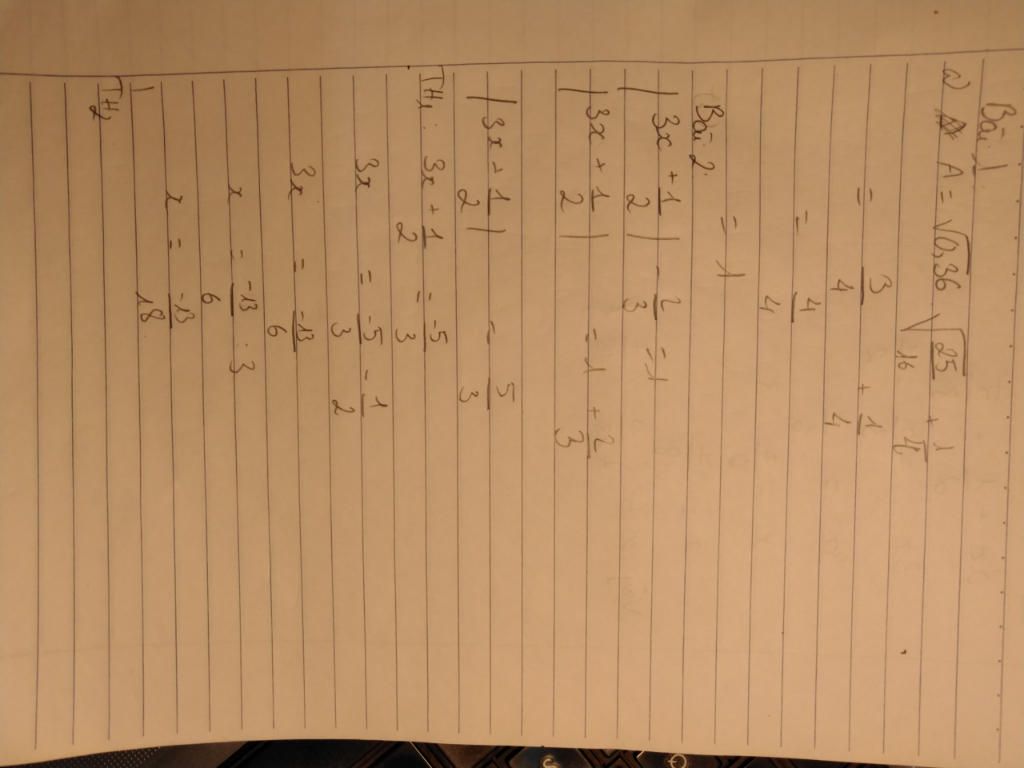 Bài 1
a) A = √0,36 √25/16 + 1/4
= 3/4 + 1/4
= 4/4
= 1
Bài 2.
|3x + 1/2| - 2/3 = 1
|3x + 1/2| = 1 + 2/3
|3x + 1/2| = 5/3
TH₁: 3x + 1/2 = -5/3
3x = -5/3 - 1/2
3x = -13/6
x = -13/6 : 3
x = -13/18
TH₂